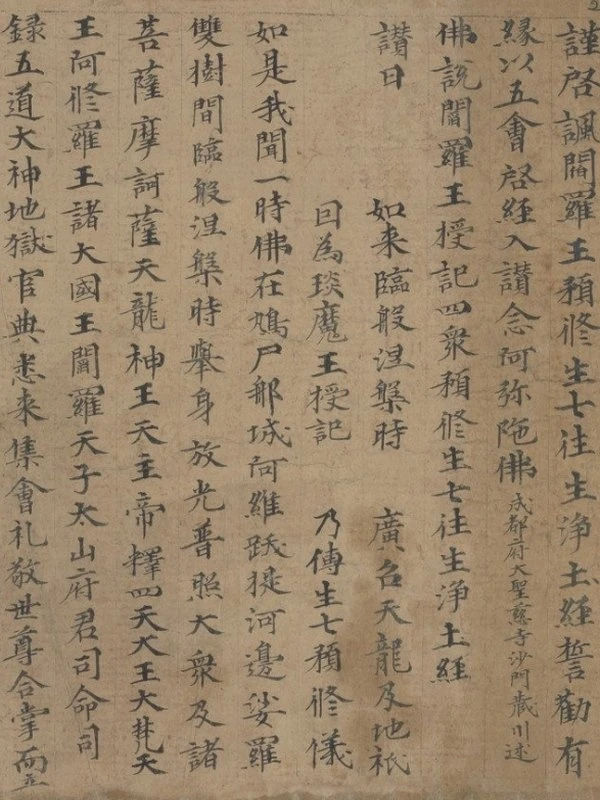 謹啓諷閻羅王預修生七往生浄土経誓勸有
縁以五會啓経入讃念阿弥陁佛 成都府大聖慈寺沙門藏川述
佛說閻羅王授記四衆預修生七往生浄土経
讃曰 如来臨般涅槃時 廣召天龍及地祇
因為琰魔王授記 乃傳生七預修儀
如是我聞一時佛在鳩尸郍城阿維跋提河邊娑羅
雙樹間臨般涅槃時舉身放光普照大衆及諸
菩薩摩訶薩天龍神王天主帝釋四天大王大梵天
王阿修羅王諸大國王閻羅天子太山府君司命司
録五道大神地獄官典悉来集會礼敬世尊合掌而立